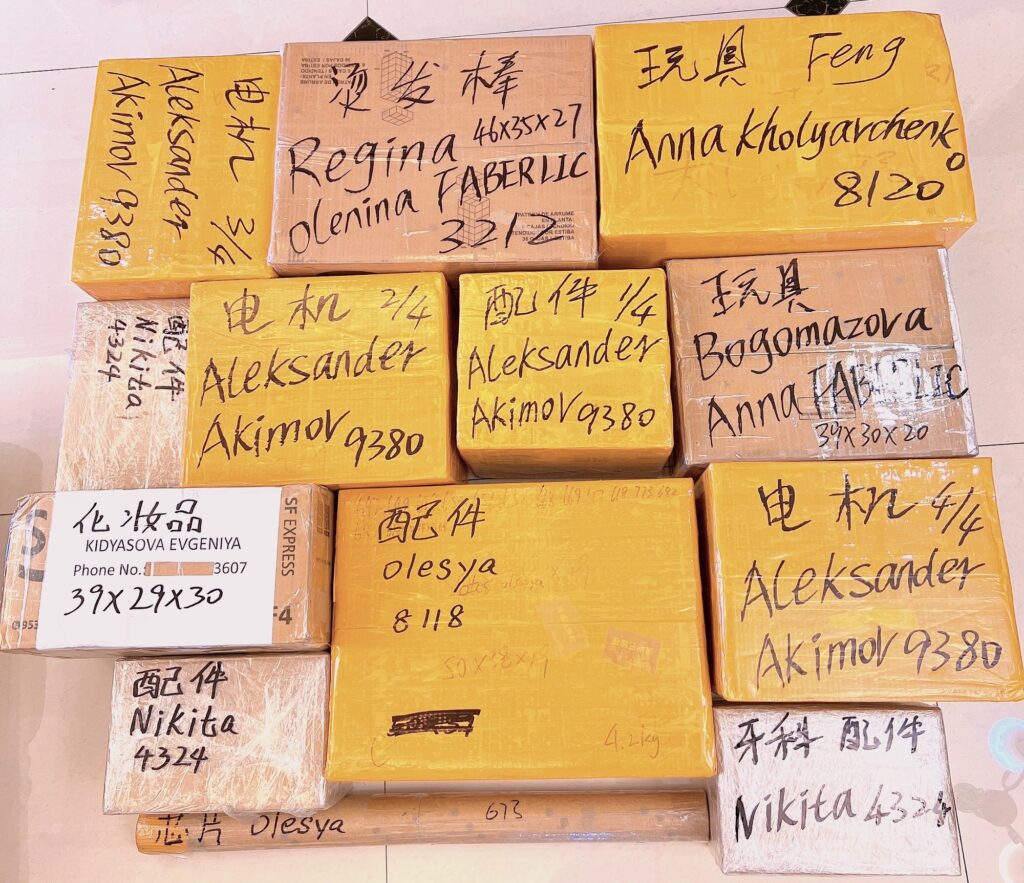 电机 3/4
Aleksander
Akimov 9380
烫发棒
Regina 46X35X27
Olenina FABERLIC
3217
玩具 Feng
Anna Kholyarchenko
8120
配件
Nikita
4324
电机 2/4
Aleksander
Akimov 9380
配件 1/4
Aleksander
Akimov 9380
玩具
Bogomazova
Anna FABERLIC
39X30X20
化妆品
KIDYASOVA EVGENIYA
Phone No.: 3607
39X29X30
SF EXPRESS
配件
olesya
8118
4.2kg
电机 4/4
Aleksander
Akimov 9380
配件
Nikita
4324
牙科 配件
Nikita 4324
芯片 olesya 673